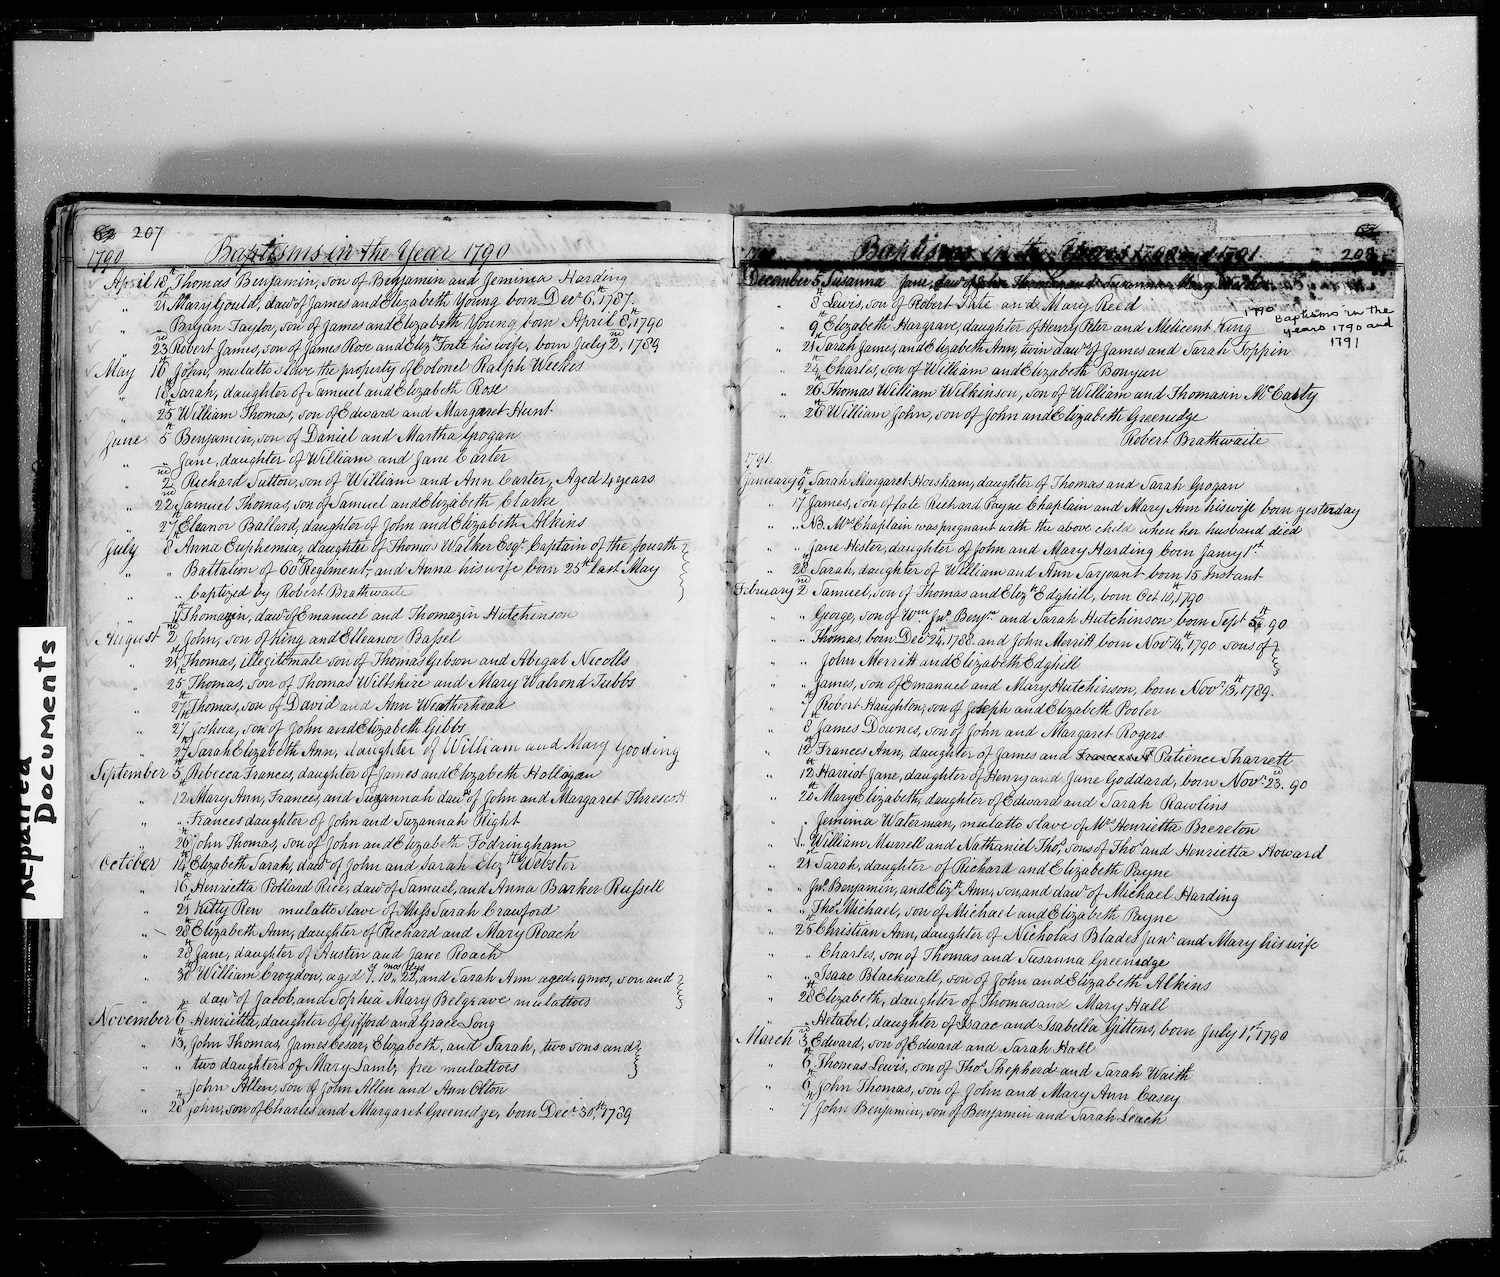 62 207
1790 Baptisms in the Year 1790
April 18th Thomas Benjamin, son of Benjamin and Jemima Harding
" 21st Mary Gould, dawr of James and Elizabeth Young born Decr 6th, 1787.
" " Bryan Taylor, son of James and Elizabeth Young, born April 8th, 1790
" 23rd Robert James, son of James Rose and Elizth Forte his wife, born July 2nd, 1789
May 16th John, mulatto slave the property of Colonel Ralph Weekes
" 18th Sarah, daughter of Samuel and Elizabeth Rose
" 25th William Thomas, son of Edward and Margaret Hunt
June 5th Benjamin, son of Daniel and Martha Grogan
" " Jane, daughter of William and Jane Carter
" 2nd Richard Sutton, son of William and Ann Carter, Aged 4 years
" 22nd Samuel Thomas, son of Samuel and Elizabeth Clarke
" 27th Eleanor Ballard, daughter of John and Elizabeth Alkins
July 8th Anna Euphemia, daughter of Thomas Walker Esqr Captain of the fourth
" " Battalion of 60th Regiment, and Anna his wife, born 25th last May
" " baptized by Robert Brathwaite
" 11th Thomazin, dawr of Emanuel and Thomazin Hutchinson
August 2nd John, son of King and Eleanor Bassel
" 21st Thomas, illegitimate son of Thomas Gibson and Abigab Nicolls
" 25 Thomas, son of Thomas Wiltshire and Mary Walrond Tubbs
" 27th Thomas, son of David and Ann Weatherhead
" 27th Joshua, son of John and Elizabeth Gibbs
" 27th Sarah Elizabeth Ann, daughter of William and Mary Gooding
September 5th Rebecca Frances, daughter of James and Elizabeth Hallagan
" 12th Mary Ann, Frances, and Suzannah dawrs of John and Margaret Threscott
" " Frances daughter of John and Suzannah Right
" 26th John Thomas, son of John and Elizabeth Fodringham
October 14th Elizabeth Sarah, dawr of John and Sarah Elizth Webster
" 16th Henrietta Pollard Rice, dawr of Samuel, and Anna Barker Russell
" 21st Kitty Ren mulatto slave of Miss Sarah Crawford
" 28th Elizabeth Ann, daughter of Richard and Mary Roach
" 28th Jane, daughter of Austin and Jane Roach
" 30th William Croydon, aged y 7, mos 10, dys 22, and Sarah Ann aged 9 mos, son and
dawr of Jacob, and Sophia Mary Belgrave mulattoes
November 6th Henrietta, daughter of Gifford and Grace Long
" 13th, John Thomas, James Cesar, Elizabeth, and Sarah, two sons and
" " two daughters of Mary Lamb, free mulattoes
" " John Allen, son of John Allen and Ann Olton
" 28th John, son of Charles and Margaret Greenidge, born Decr 30th, 1789
62
Baptisms in the Years 1790 and 1791 208
December 5th Susanna Jane, dawr of John Thomas and Susanna Mary
" 8th Lewis, son of Robert Tate and Mary Reed
" 9th Elizabeth Hargrave, daughter of Henry Peter and Melicent King
" 21st Sarah James, and Elizabeth Ann, twin dawrs of James and Sarah Toppin
" 24th Charles, son of William and Elizabeth Bonyun
" 26th Thomas William Wilkinson, son of William and Thomasin McCarty
" 26th William John, son of John and Elizabeth Greenidge
Robert Brathwaite
1790 Baptisms in the
years 1790 and
1791
1791.
January 9th Sarah Margaret Horsham, daughter of Thomas and Sarah Grogan
" 17th James, son of late Richard Payne Chaplain and Mary Ann his wife born yesterday
" " NB. Mrs Chaplain was pregnant with the above child when her husband died
" " Jane Hester, daughter of John and Mary Harding born Janry 1st
" 28th Sarah, daughter of William and Ann Sarjoant born 15 Instant
February 2nd Samuel, son of Thomas and Elizth Edghill, born Oct 10th, 1790
" " George, son of Wm Jno Benjmn and Sarah Hutchinson born Sept 90
" " Thomas, born Decr 24th, 1788 and John Merritt born Novr 14th, 1790 sons of
" " John Merritt and Elizabeth Edghill
" " James, son of Emanuel and Mary Hutchinson, born Novr 13th, 1789.
" 7th Robert Haughton, son of Joseph and Elizabeth Pooler
" 8th James Downes, son of John and Margaret Rogers
" 12th Frances Ann, daughter of James and Patience Sharrett
" 12th Harriot Jane, daughter of Henry and Jane Goddard, born Novr 23rd. 90
" 20th Mary Elizabeth, daughter of Edward and Sarah Rawlins
" " Jemima Waterman, mulatto slave of Mrs Henrietta Brereton
" " William Murrell and Nathaniel Thos, sons of Thos and Henrietta Howard
" 21st Sarah, daughter of Richard and Elizabeth Payne
" " Jno Benjamin, and Elizth Ann, son, and dawr of Michael Harding
" " Thos Michael, son of Michael and Elizabeth Payne
" 25th Christian Ann, daughter of Nicholas Blades Junr and Mary his wife
" " Charles, son of Thomas and Susanna Greenidge
" " Isaac Blackwall, son of John and Elizabeth Alkins
" 28th Elizabeth, daughter of Thomas and Mary Hall
" " Hetabel, daughter of Isaac and Isabella Gittens, born July 1st, 1790
March 3rd Edward, son of Edward and Sarah Hall
" 6th Thomas Lewis, son of Thos Shepherd and Sarah Waith
" 6th John Thomas, son of John and Mary Ann Casey
" 7th John Benjamin, son of Benjamin and Sarah Leach
Repaired
Documents